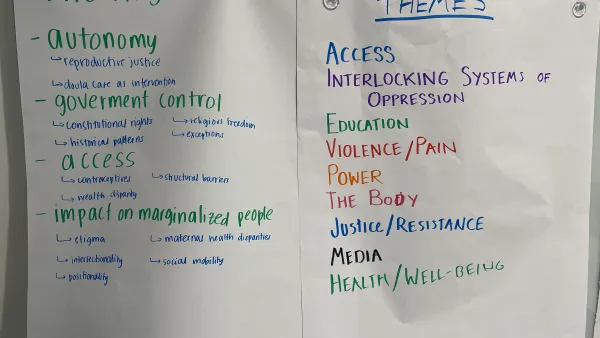 - autonomy
↳ reproductive justice
↳ doula care as intervention
- goverment control
↳ constitutional rights ↳ religious freedom
↳ historical patterns ↳ exceptions
- access
↳ contraceptives ↳ structural barriers
↳ wealth disparity
- impact on marginalized people
↳ stigma ↳ maternal health disparities
↳ intersectionality ↳ social mobility
↳ positionality
THEMES
ACCESS
INTERLOCKING SYSTEMS OF
OPPRESSION
EDUCATION
VIOLENCE/PAIN
POWER
THE BODY
JUSTICE/RESISTANCE
MEDIA
HEALTH/WELL-BEING